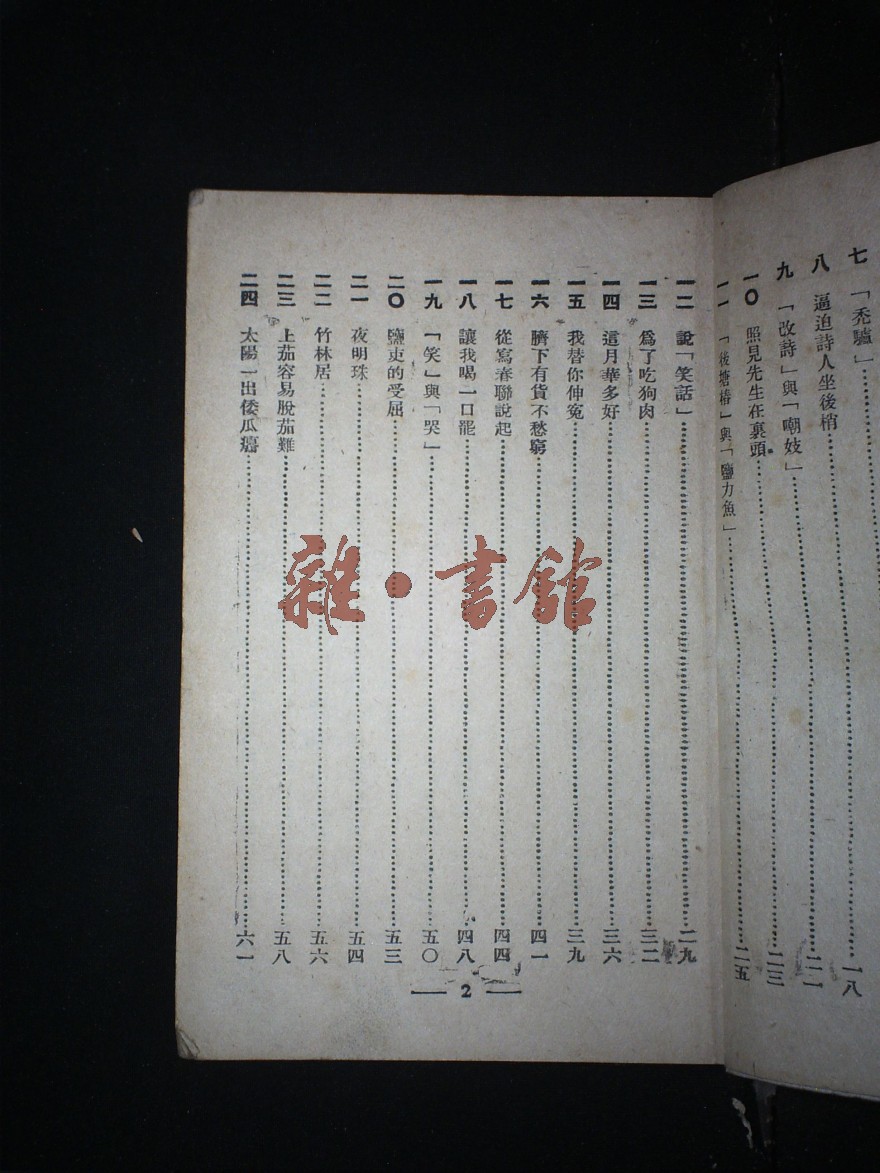 七 「禿驢」
八 逼迫詩人坐後梢 一八
九 「改詩」與「嘲妓」 二一
一〇 照見先生在裏頭 二三
一一 「後塘椿」與「鹽力魚」 二五
一二 說「笑話」 二九
一三 爲了吃狗肉 三二
一四 這月華多好 三六
一五 我替你伸寃 三九
一六 臍下有貨不愁窮 四一
一七 從寫春聯說起 四四
一八 讓我喝一口罷 四八
一九 「笑」與「哭」 五〇
二〇 鹽吏的受屈 五三
二一 夜明珠 五四
二二 竹林居 五六
二三 上茄容易脫茄難 五八
二四 太陽一出倭瓜癟 六一
2
雜·書館